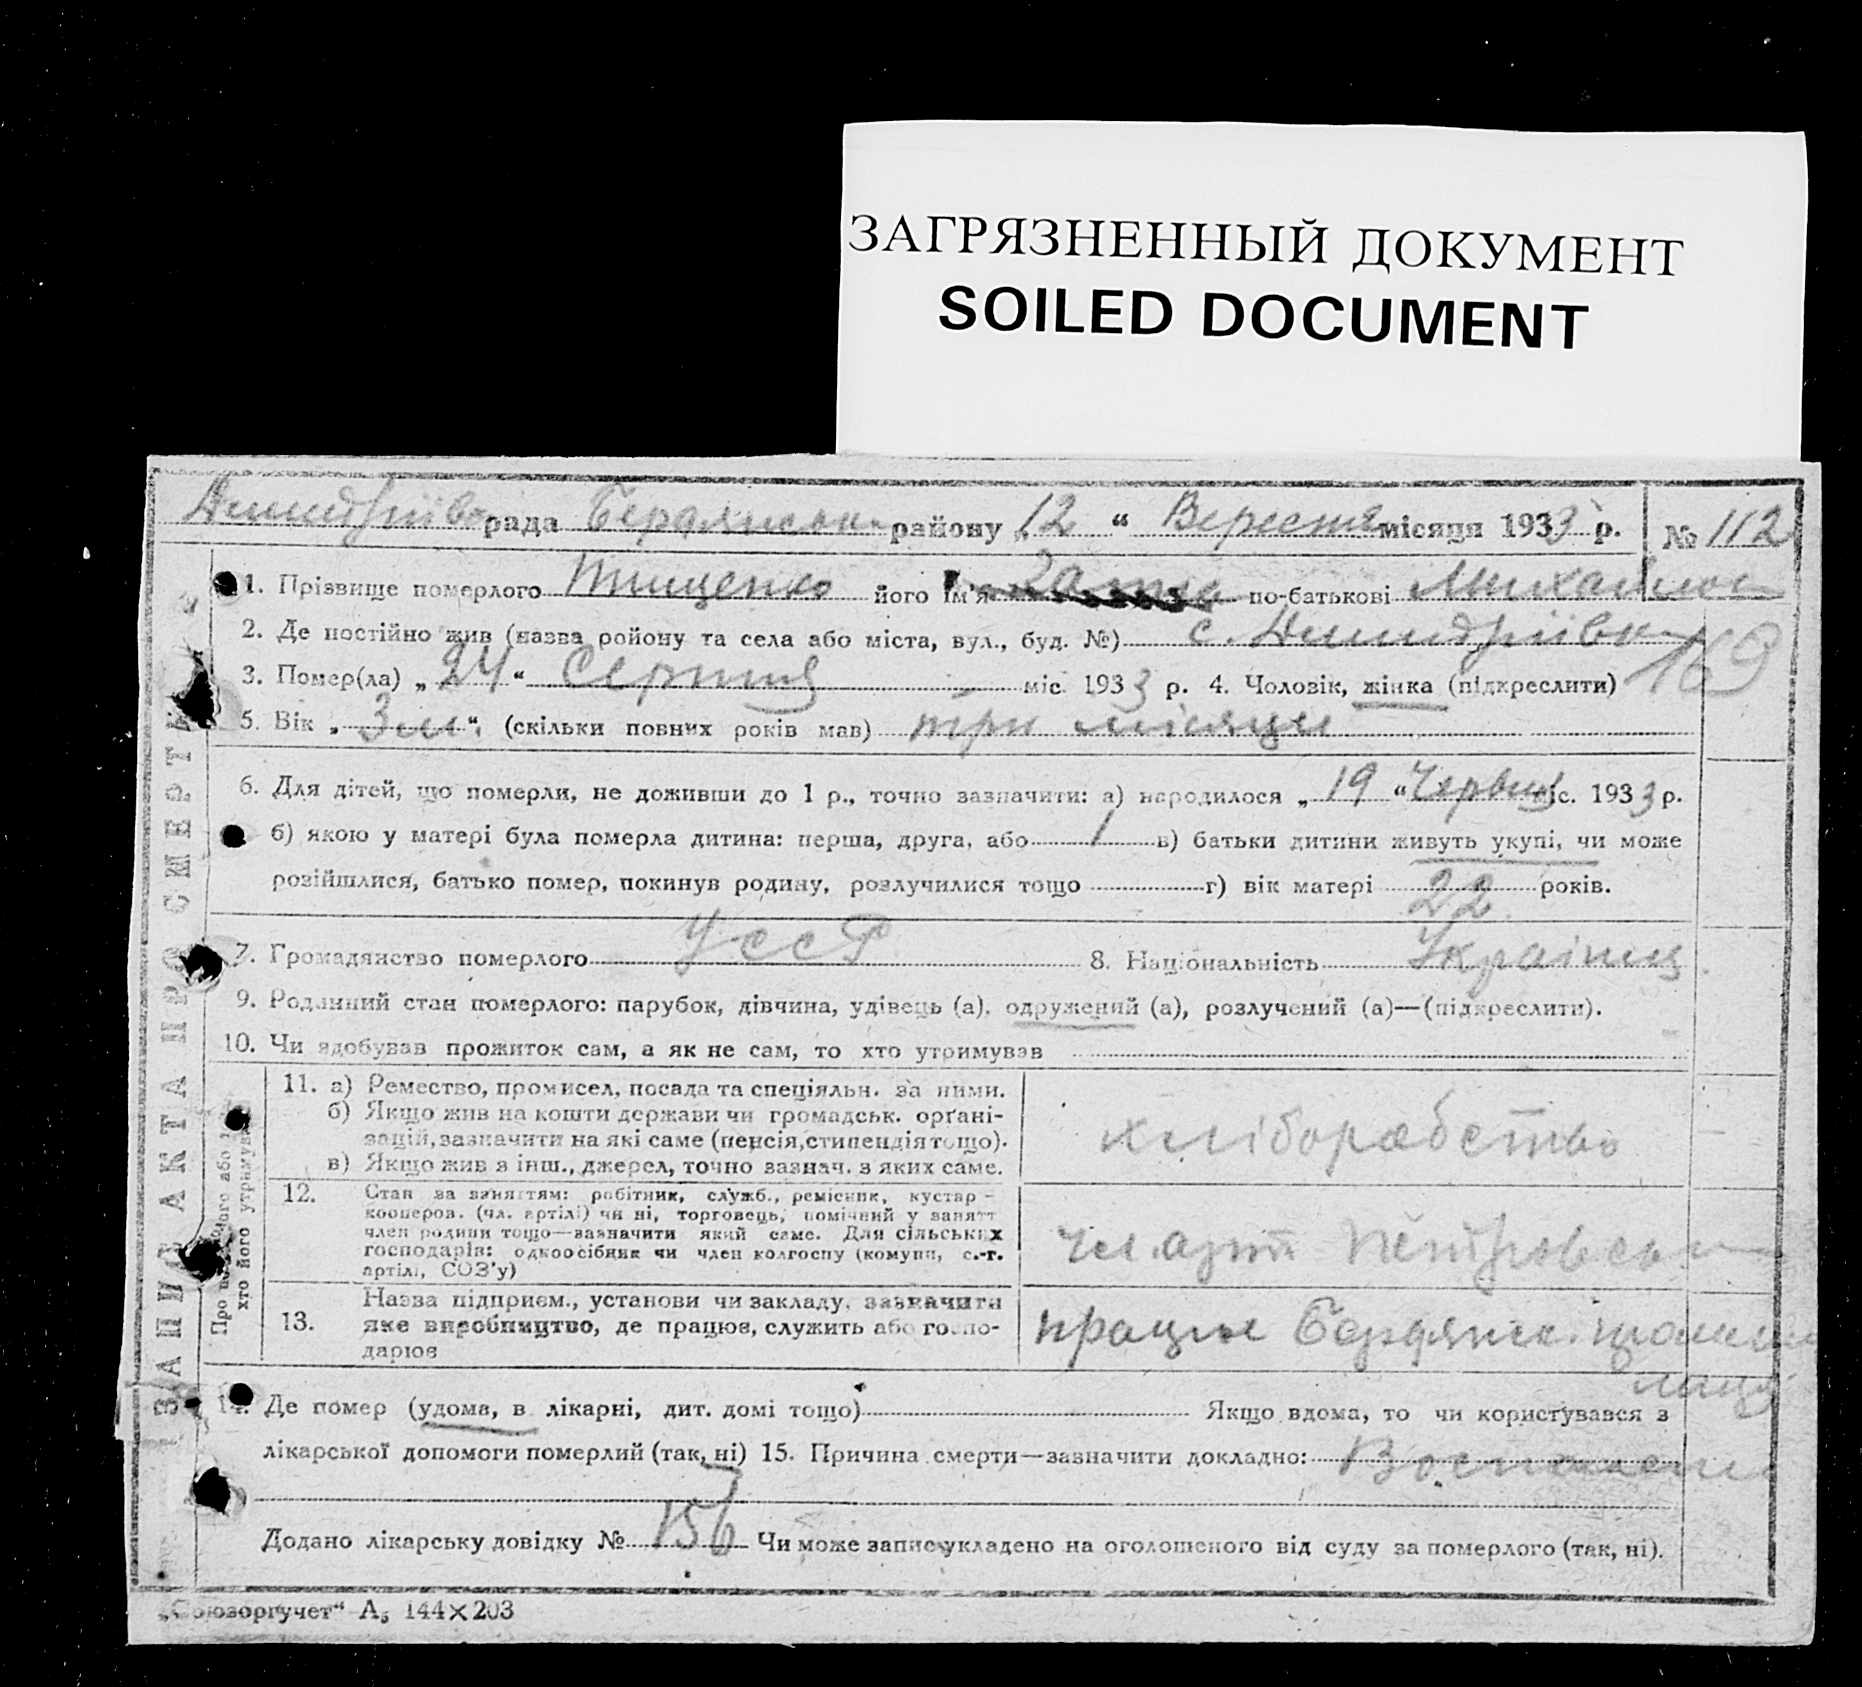 ЗАГРЯЗНЕННЫЙ ДОКУМЕНТ
SOILED DOCUMENT
рада Бердянськ району 12 “ Вересня місяця 1933 р. № 112
ЗАПИС АКТА ПРО СМЕРТЬ
1. Прізвище померлого Тищенко його Ім'я по-батькові
2. Де постійно жив (назва району та села або міста, вул., буд. №) с.
169
3. Помер(ла) „ 24 “ Серпня міс. 1933 р. 4. Чоловік, жінка (підкреслити)
5. Вік „ 3 м “. (скільки повних років мав) три місяци
6. Для дітей, що померли, не доживши до 1 р., точно зазначити: а) народилося „ 19 “ Червня міс. 1933 р.
б) якою у матері була померла дитина: перша, друга, або 1 в) батьки дитини живуть укупі, чи може
розійшлися, батько помер, покинув родину, розлучилися тощо г) вік матері 22 років.
7. Громадянство померлого УССР 8. Національність Українц
9. Родинний стан померлого: парубок, дівчина, удівець (а), одружений (а), розлучений (а)—(підкреслити).
10. Чи здобував прожиток сам, а як не сам, то хто утримував
хто його утримував
11. а) Ремество, промисел, посада та спеціяльн. за ними.
б) Якщо жив на кошти держави чи громадськ. орґані-
зацій, зазначити на які саме (пенсія, стипендія тощо).
в) Якщо жив з інш., джерел, точно зазнач. з яких саме.
хліборобство
12. Стан за заняттям: робітник, служб., ремісник, кустар-
кооперов. (чл. артілі) чи ні, торговець, помічний у занятт
член родини тощо—зазначити який саме. Для сільських
господарів: одноосібник чи член колгоспу (комуни, с.-г.
артілі, СОЗ'у)
13. Назва підприєм., установи чи закладу, зазначити
яке виробництво, де працюв, служить або госпо-
дарюв
14. Де помер (удома, в лікарні, дит. домі тощо) Якщо вдома, то чи користувався з
лікарської допомоги померлий (так, ні) 15. Причина смерти—зазначити докладно:
Додано лікарську довідку № 156 Чи може запис укладено на оголошеного від суду за померлого (так, ні).
„Союзоргучет“ А₅ 144×203